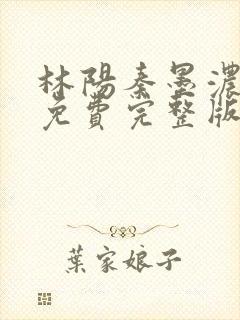 林陽秦墨濃
免費完整版
葉家娘子